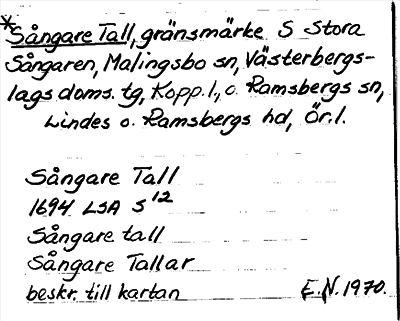 *Sångare Tall, gränsmärke S Stora
Sångaren, Malingsbo sn, Västerbergs-
lags doms. tg, Kopp. l., o. Ramsbergs sn,
Lindes o. Ramsbergs hd, Ör. l.
Sångare Tall
1694 LSA S 12
Sångare tall
Sångare Tallar
beskr. till kartan E.N. 1970.